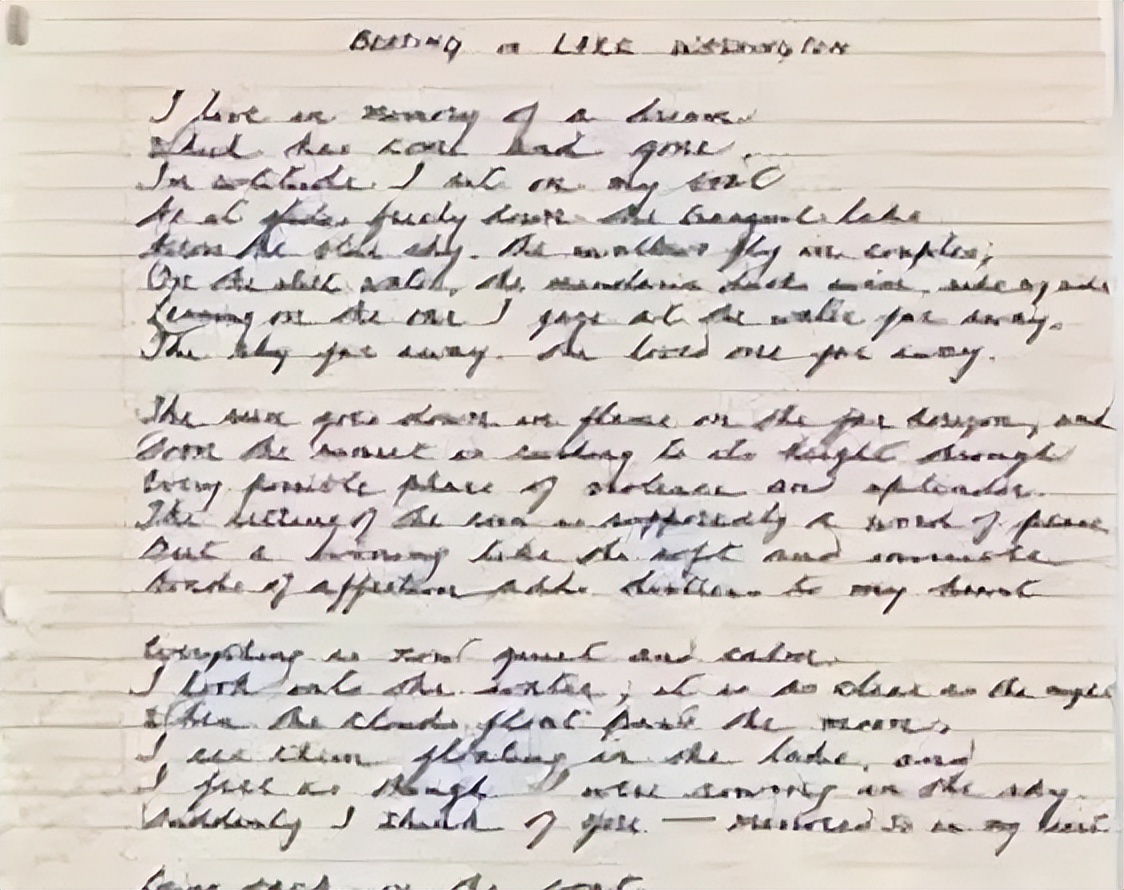 BOATING on LAKE WASHINGTON
I live in memory of a dream
Which has come and gone.
In solitude I sit on my boat
As it glides freely down the tranquil lake
the blue sky. the swallows fly in couples;
On the still water, the mandarin ducks swim, side by side
Leaning on the oar I gaze at the water far away.
The sky far away. The loved one far away.
The sun goes down in flame on the far horizon, and
Soon the sunset is to its height through
Every possible phase of violence and splendor.
The setting of the sun is supposedly a word of peace
But a evening like the soft and
of affection adds to my heart
Everything is now quiet and calm.
I look into the water; it is so clear as the night
When the clouds float past the moon,
I see them floating in the lake, and
I feel as though I were rowing in the sky.
Suddenly I think of you — mirrored so in my heart